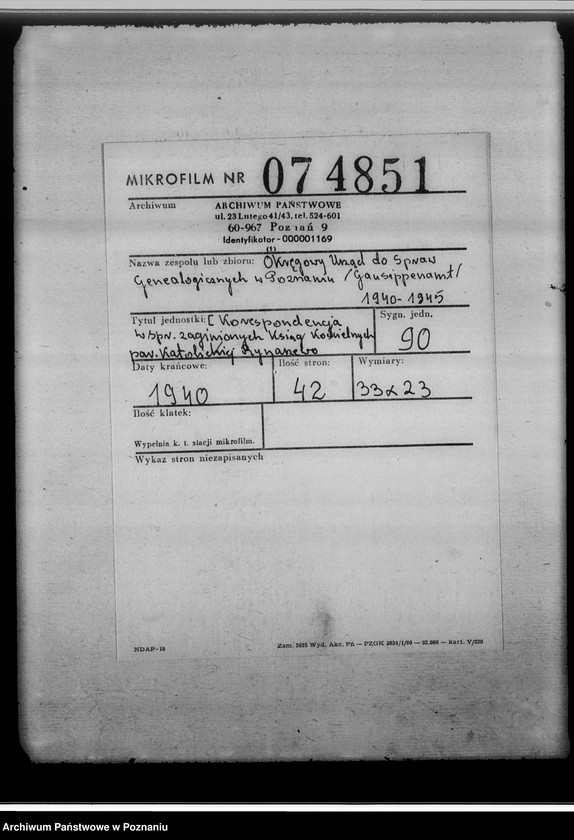 MIKROFILM NR 074851
Archiwum
ARCHIWUM PAŃSTWOWE
ul. 23 Lutego 41/43, tel. 524-601
60-967 Poznań 9
Identyfikator - 000001169
(1)
Nazwa zespołu lub zbioru: Okręgowy Urząd do Spraw
Genealogicznych w Poznaniu /Gausippenamt/
1940-1945
Tytuł jednostki: [Korespondencja
w spr. zaginionych Ksiąg Kościelnych
par. Katolickiej
Sygn. jedn.
90
Daty krańcowe:
1940
Ilość stron:
42
Wymiary:
33x23
Ilość klatek:
Wypełnia k. t. mikrofilm.
Wykaz stron niezapisanych
NDAP-10
Zam. 2625 Wyd. Akc. Pń — PZGK
Archiwum Państwowe w Poznaniu